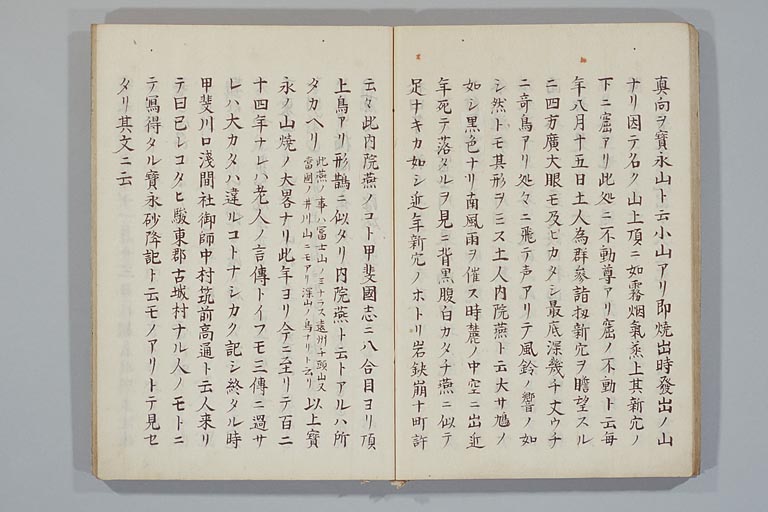 真向ヲ寳永山ト云小山アリ即焼出時發出ノ山
ナリ因テ名ク山上頂ニ如霧烟氣蒸上其新穴ノ
下ニ窟アリ此処ニ不動尊アリ窟ノ不動ト云毎
年八月十五日土人為群參詣扨新穴ヲ瞻望スル
ニ四方廣大眼モ及ヒカタシ最底深幾千丈ウチ
ニ奇鳥アリ処々ニ飛テ声アリテ風鈴ノ響ノ如
シ然トモ其形ヲミス土人内院燕ト云大サ鳩ノ
如シ黒色ナリ南風雨ヲ催ス時麓ノ中空ニ出近
年死テ落タルヲ見ニ背黒腹白カタチ燕ニ似テ
足ナキカ如シ近年新穴ノホトリ岩鈌崩十町許
云々此内院燕ノコト甲斐國志ニ八合目ヨリ頂
上鳥アリ形鵲ニ似タリ内院燕ト云トアルハ所
タカヘリ此燕ノ事ハ冨士山ノミナラス遠州千頭山又
當國ノ井川山ニモアリ深山ノ鳥ナリト云リ以上寳
永ノ山焼ノ大畧ナリ此年ヨリ今ニ至リテ百二
十四年ナレハ老人ノ言傳トイフモ三傳ニ過サ
レハ大カタハ違ルコトナシカク記シ終タル時
甲斐川口淺間社御師中村筑前高通ト云人来リ
テ曰已レコタヒ駿東郡古城村ナル人ノモトニ
テ寫得タル寳永砂降記ト云モノアリトテ見セ
タリ其文ニ云